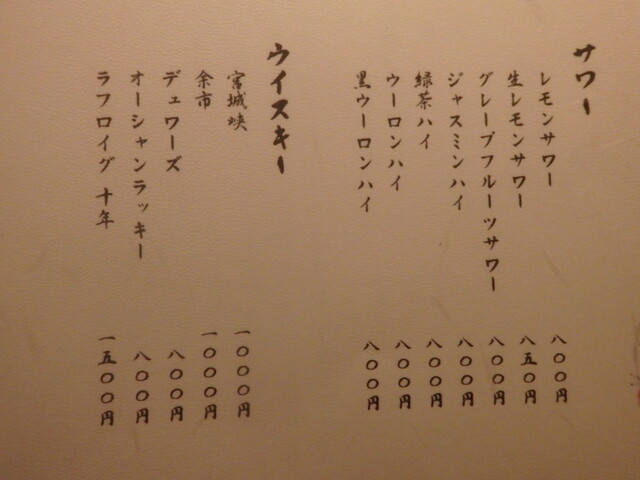 サワー
レモンサワー 八〇〇円
生レモンサワー 八五〇円
グレープフルーツサワー 八〇〇円
ジャスミンハイ 八〇〇円
緑茶ハイ 八〇〇円
ウーロンハイ 八〇〇円
黒ウーロンハイ 八〇〇円
ウイスキー
宮城峡 一〇〇〇円
余市 一〇〇〇円
デュワーズ 八〇〇円
オーシャンラッキー 八〇〇円
ラフロイグ 十年 一五〇〇円